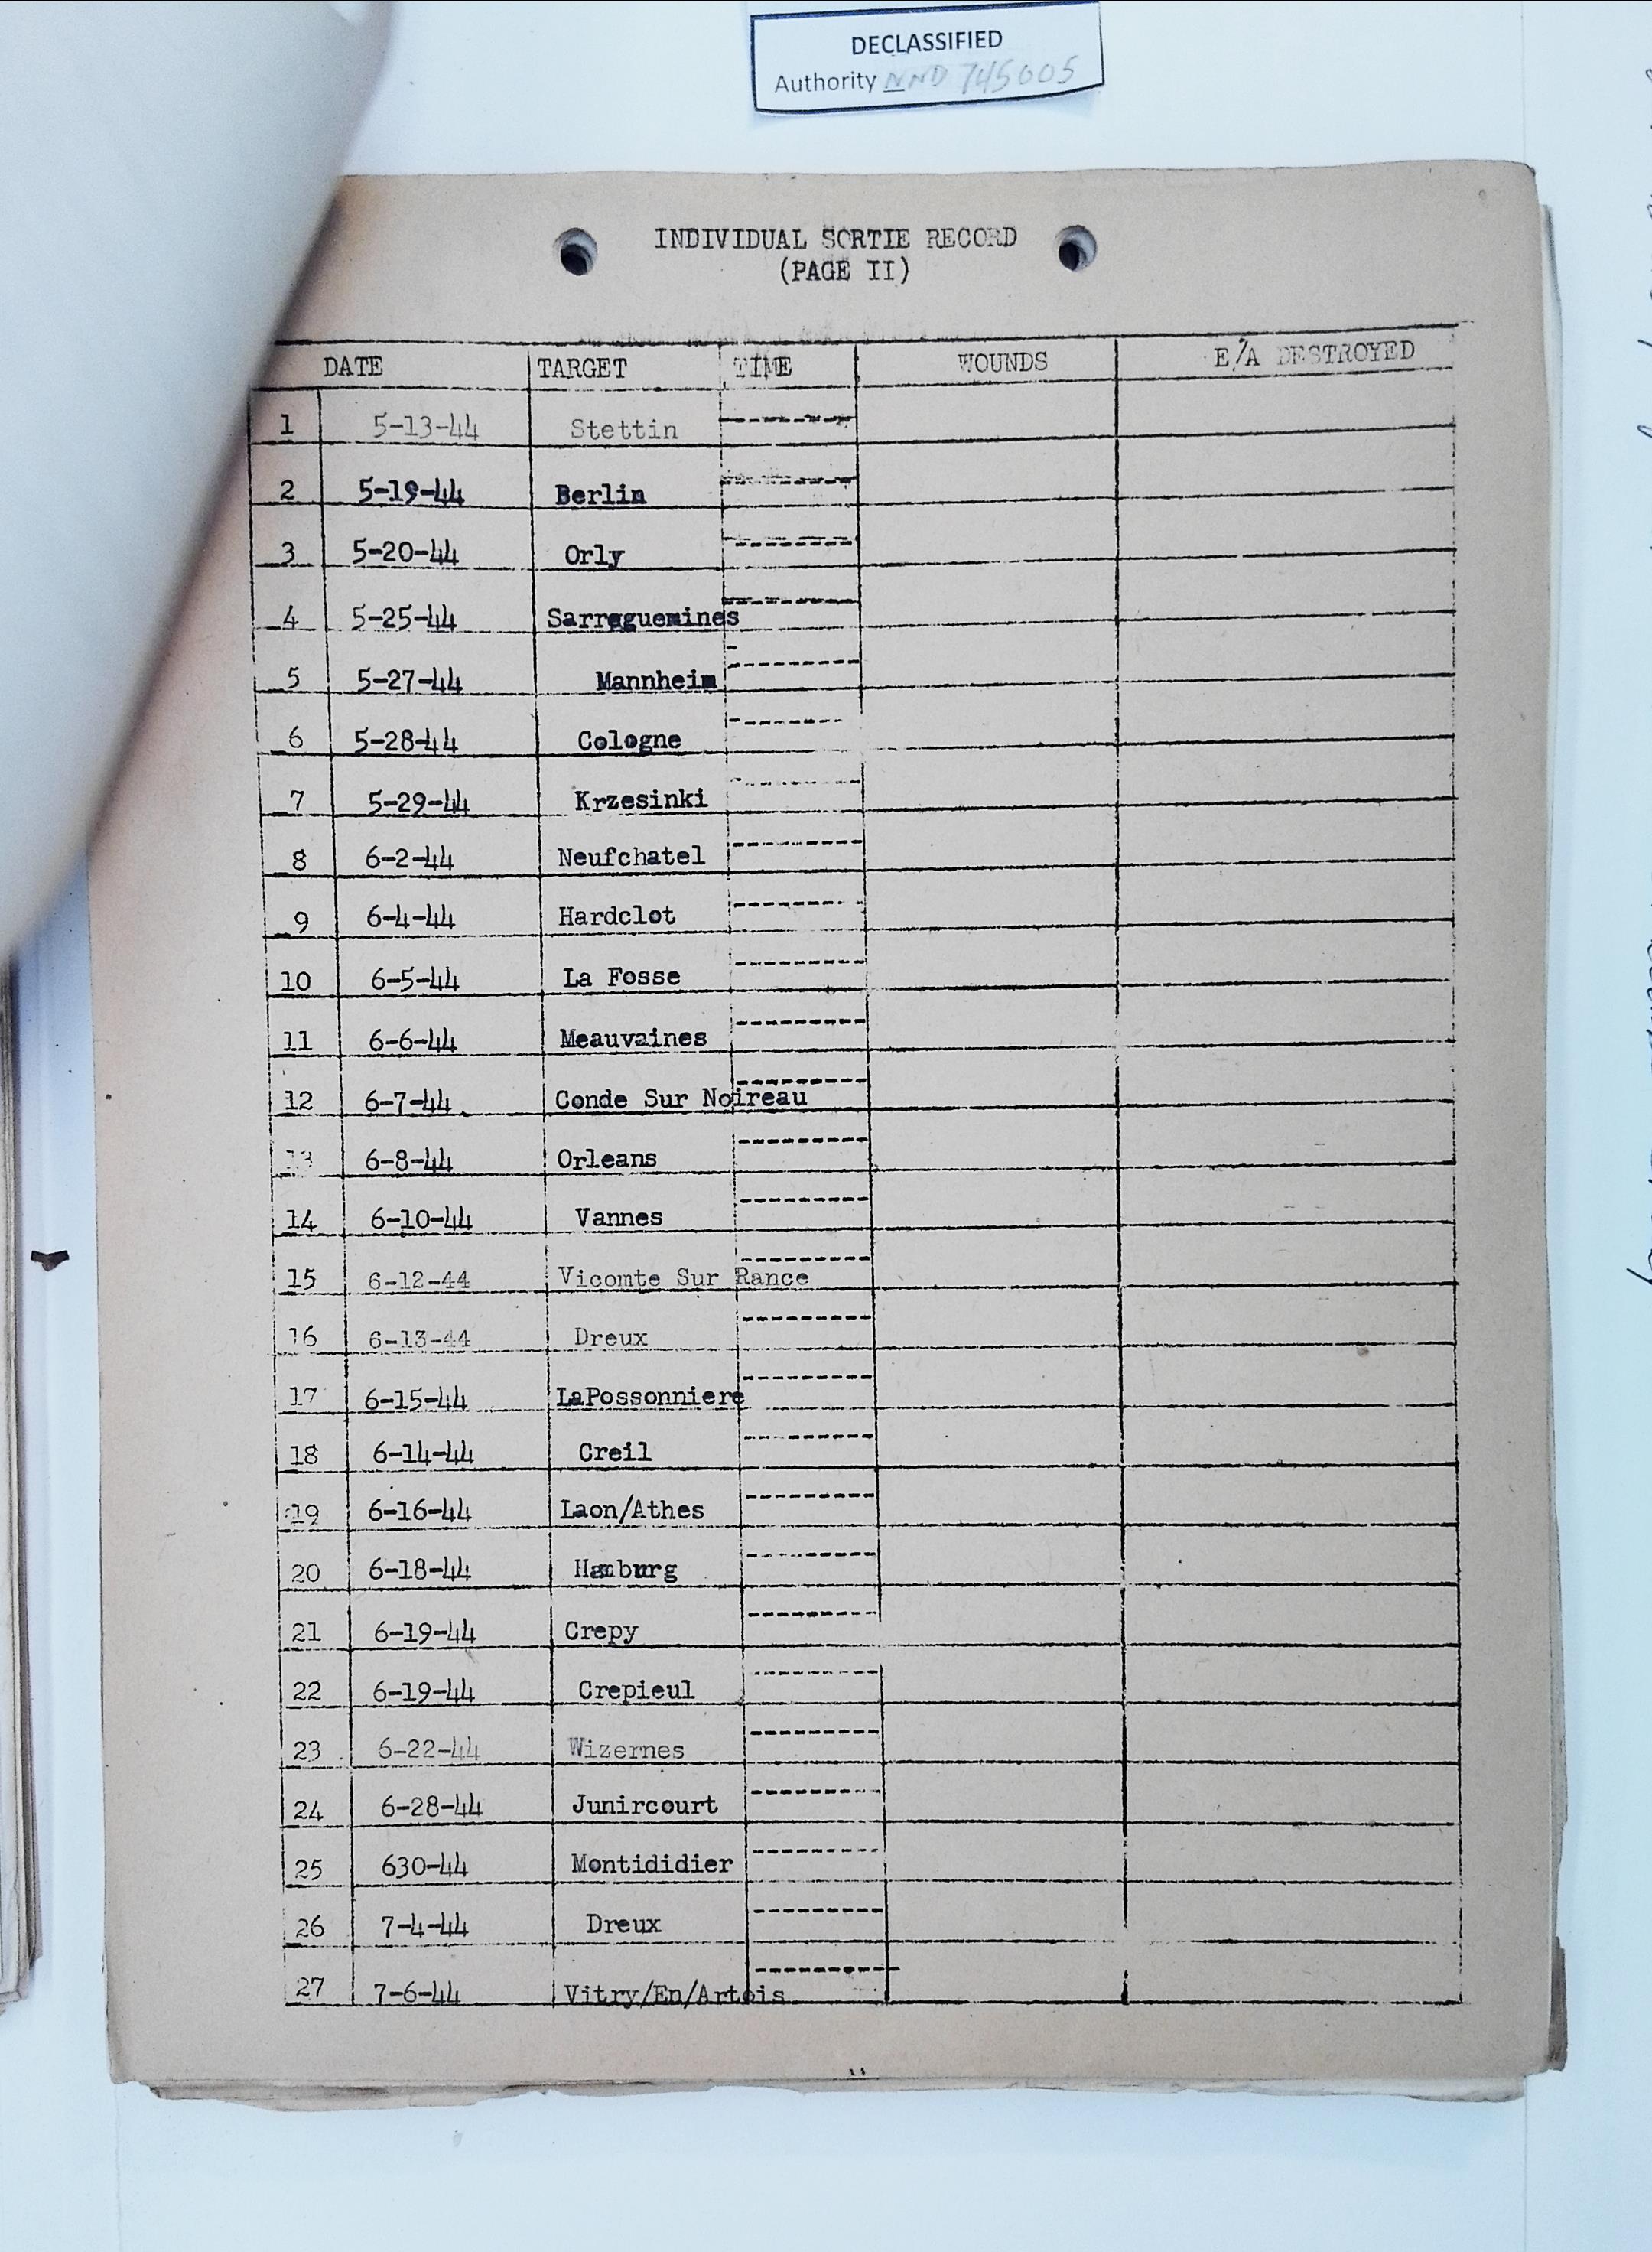 DECLASSIFIED
Authority NND 745005
INDIVIDUAL SORTIE RECORD
(PAGE II)
DATE TARGET TIME WOUNDS E/A DESTROYED
1 5-13-44 Stettin
2 5-19-44 Berlin
3 5-20-44 Orly
4 5-25-44 Sarreguemines
5 5-27-44 Mannheim
6 5-28-44 Cologne
7 5-29-44 Krzesinki
8 6-2-44 Neufchatel
9 6-4-44 Hardclot
10 6-5-44 La Fosse
11 6-6-44 Meauvaines
12 6-7-44 Conde Sur Noireau
13 6-8-44 Orleans
14 6-10-44 Vannes
15 6-12-44 Vicomte Sur Rance
16 6-13-44 Dreux
17 6-15-44 LaPossonniere
18 6-14-44 Creil
19 6-16-44 Laon/Athes
20 6-18-44 Hamburg
21 6-19-44 Crepy
22 6-19-44 Crepieul
23 6-22-44 Wizernes
24 6-28-44 Junircourt
25 630-44 Montididier
26 7-4-44 Dreux
27 7-6-44 Vitry/En/Artois